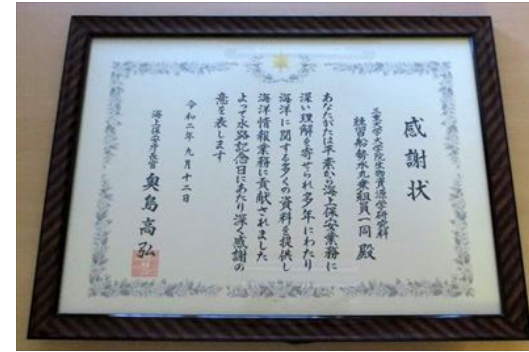 感謝状
三重大学大学院生物資源学研究科
練習船勢水丸乗組員一同 殿
あなたがたは平素から海上保安業務に
深い理解を寄せられ多年にわたり
海洋に関する多くの資料を提供し
海洋情報業務に貢献されました
よって水路記念日にあたり深く感謝の
意を表します
令和二年九月十二日
海上保安庁長官 奥島高弘